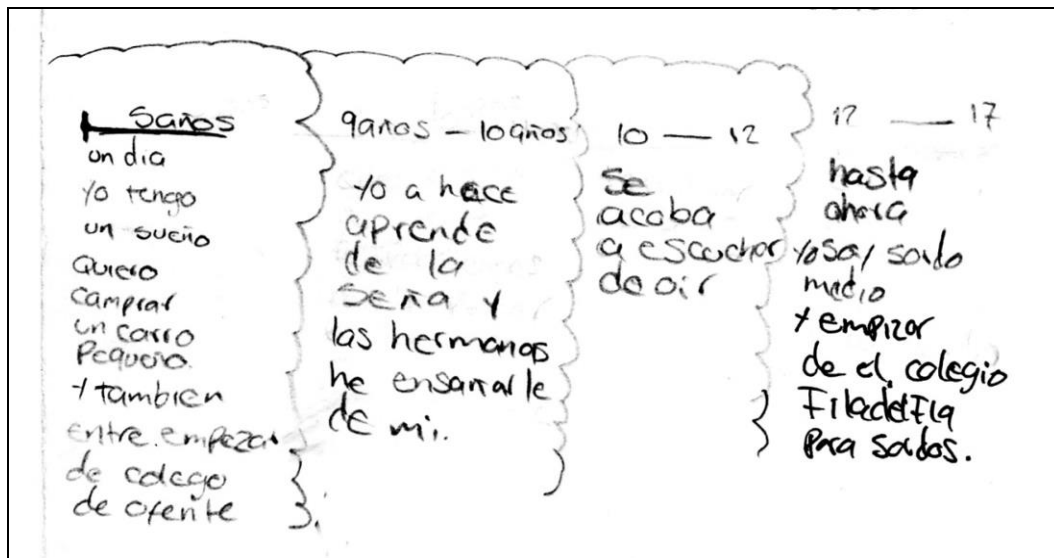 5años
un dia
yo tengo
un sueño
Quiero
camprar
un carro
Pequeño.
y tambien
entre. empezar
de colego
de ofente
9años - 10años
yo a hace
aprende
de la
seña y
las hermanas
he ensañarle
de mi.
10 — 12
Se
acaba
a escuchar
de oir
12 — 17
hasta
ahora
yo soy sordo
medio
y empizar
de el colegio
Filadelfia
para sordos.